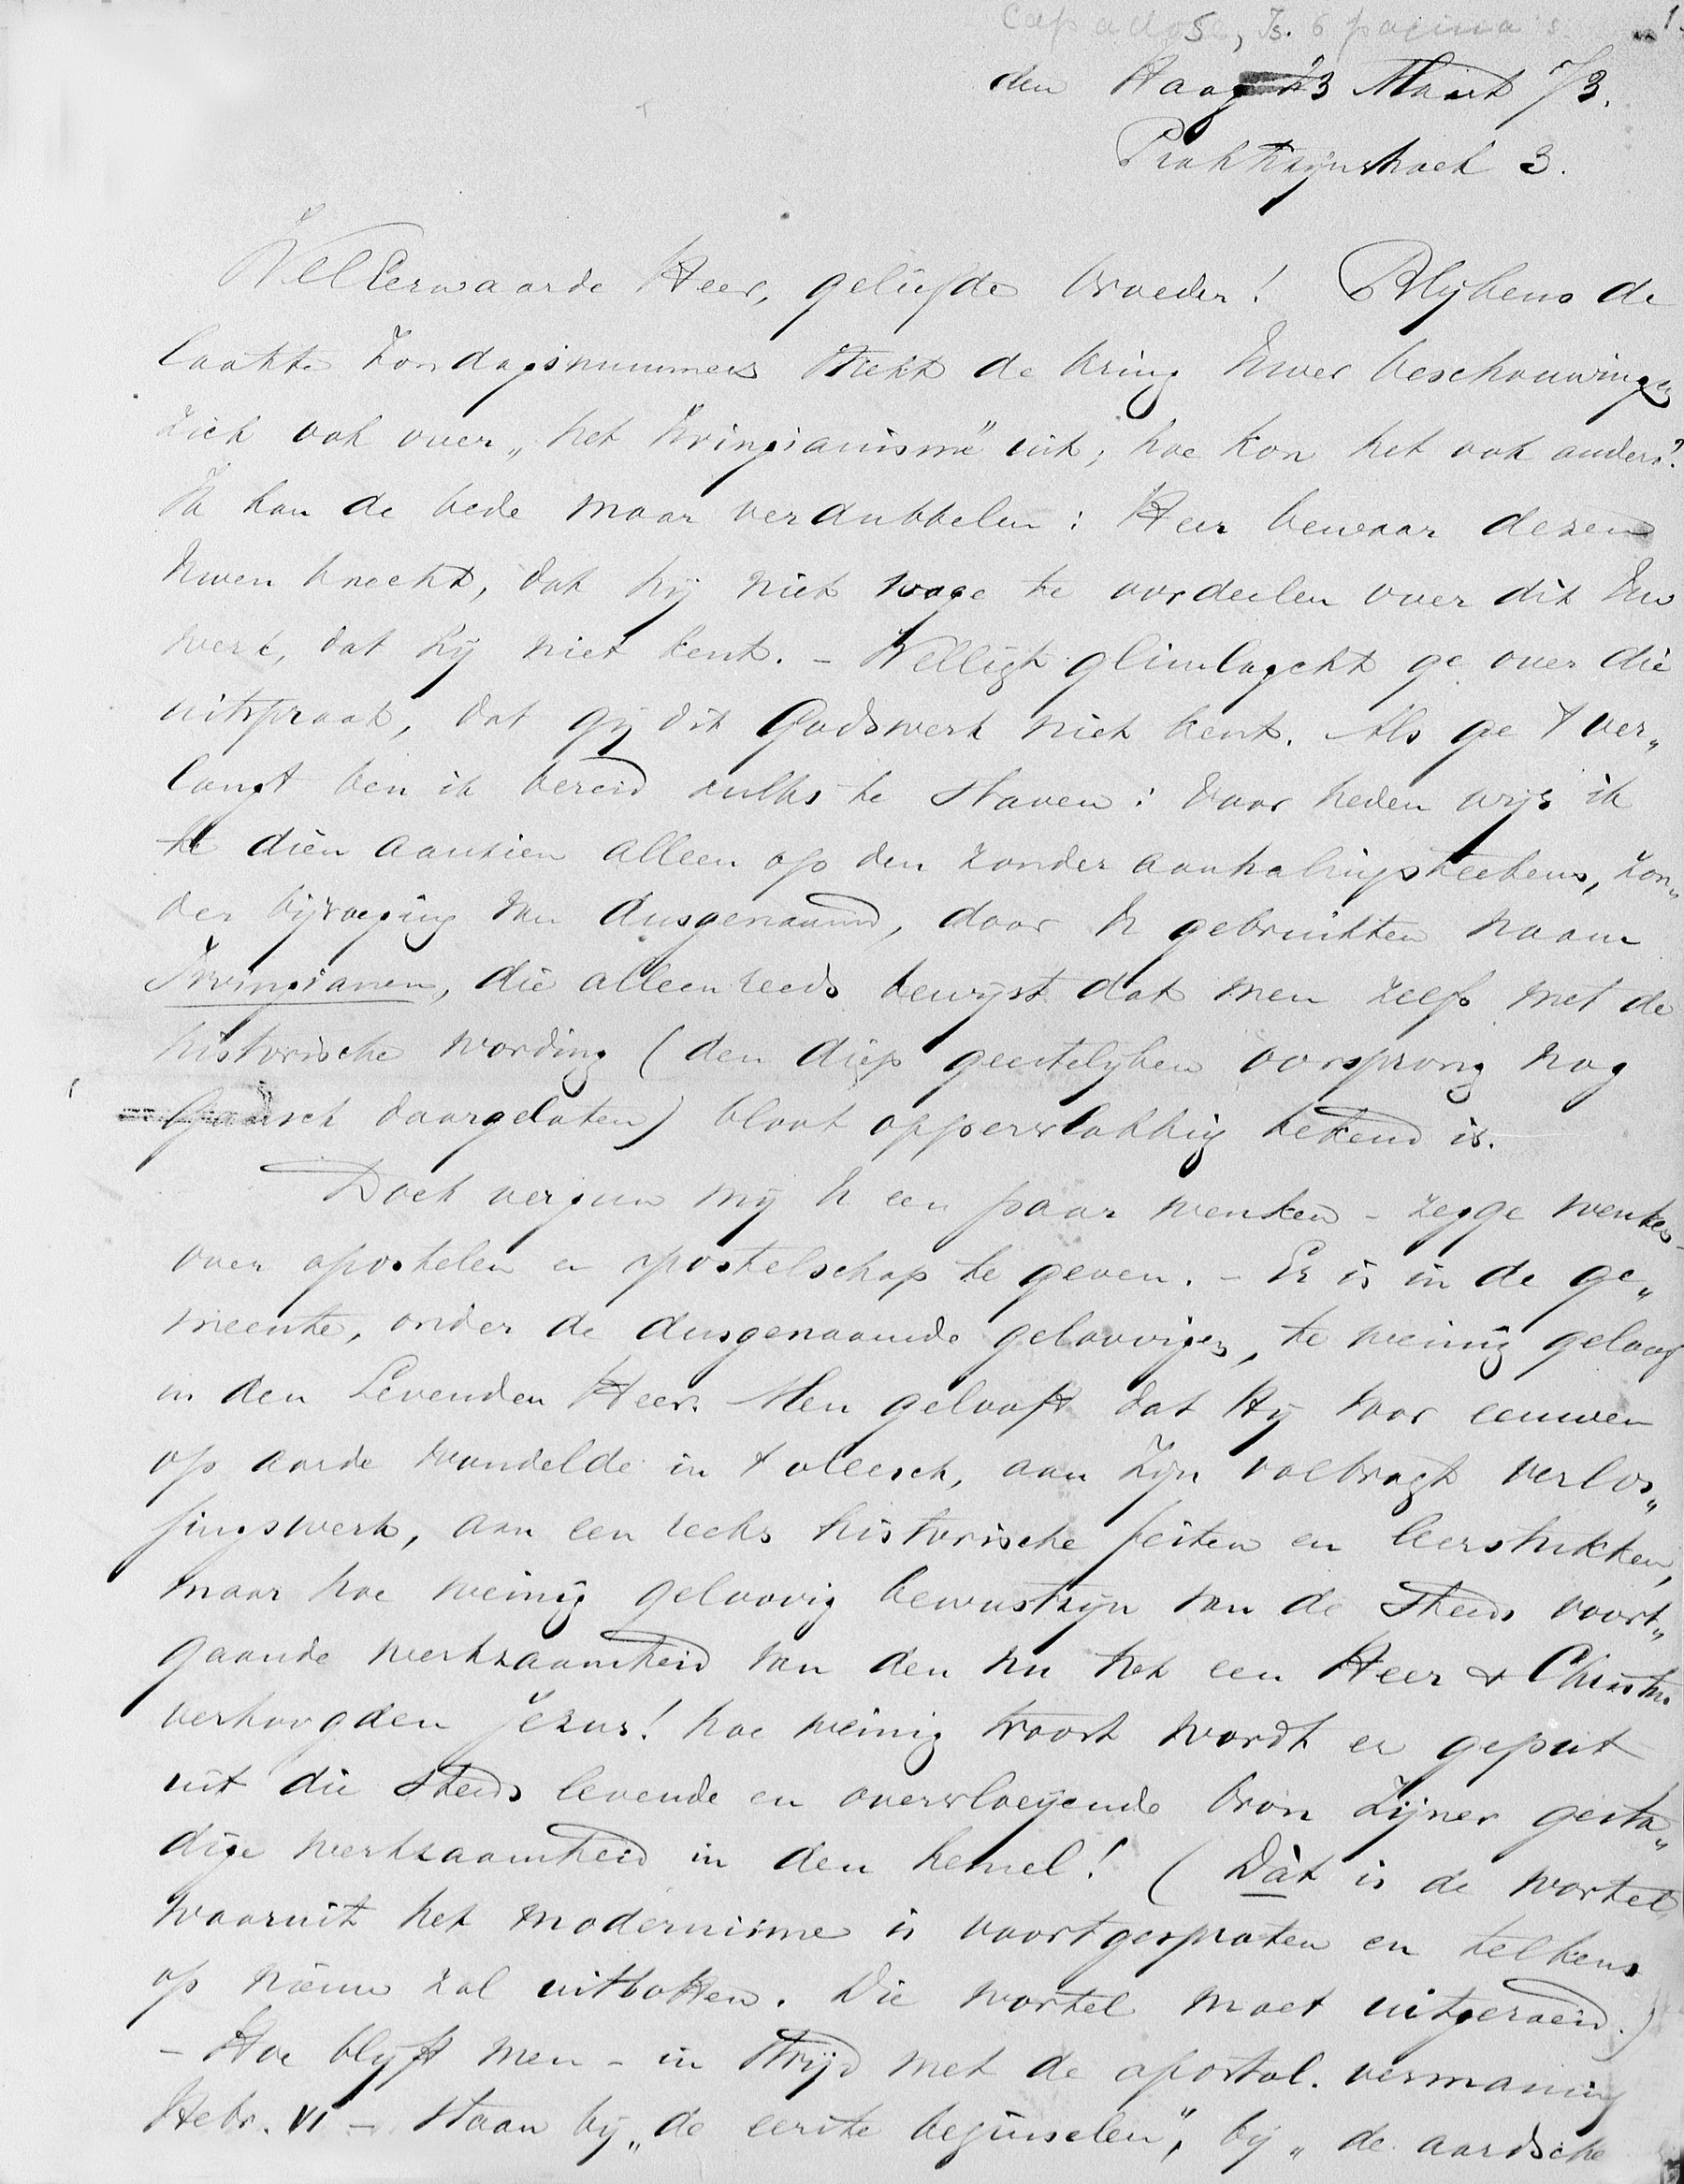 Capadose, Is. 6 pagina's. 1.
den Haag 23 Maart 73.
Prakkijnshoek 3.
WelEerwaarde Heer, geliefde broeder! Blijkens de
laatste Zondagsnummers strekt de kring Uwer beschouwingen
zich ook over „het Irvingianisme" uit; hoe kon het ook anders?
Ik kan de bede maar verdubbelen: Heer bewaar dezen
Uwen knecht, dat hij niet wage te oordeelen over dit Uw
werk, dat hij niet kent. - Welligt glimlagcht ge over die
uitspraak, dat gij dit Godswerk niet kent. Als ge 't ver„
langt ben ik bereid zulks te staven: voor heden wijs ik
te dien aanzien alleen op den zonder aanhalingsteekens, zon„
der bijvoeging van dusgenaamd, door U gebruikten naam
Irvingianen, die alleen reeds bewijst dat men zelfs met de
historische wording (den diep geestelijken oorsprong nog
gansch daargelaten) bloot oppervlakkig bekend is.
Doch vergun mij U een paar wenken - zegge wenken -
over apostelen en apostelschap te geven. - Er is in de ge„
meente, onder de dusgenaamde geloovigen, te weinig geloof
in den Levenden Heer. Men gelooft dat Hij voor eeuwen
op aarde wandelde in 't vleesch, aan Zijn volbragt verlos„
singswerk, aan een reeks historische feiten en leerstukken,
maar hoe weinig geloovig bewustzijn van de steeds voort„
gaande werkzaamheid van den nu tot een Heer & Christus
verhoogden Jezus! hoe weinig troost wordt er geput
uit die steeds levende en overvloeijende bron Zijner gesta„
dige werkzaamheid in den hemel! (Dàt is de wortel
waaruit het modernisme is voortgesproten en telkens
op nieuw zal uitbotten. Die wortel moet uitgeroeid.)
- Hoe blijft men - in strijd met de apostol. vermaning
Hebr. VI - staan bij „de eerste beginselen", bij „de aardsche